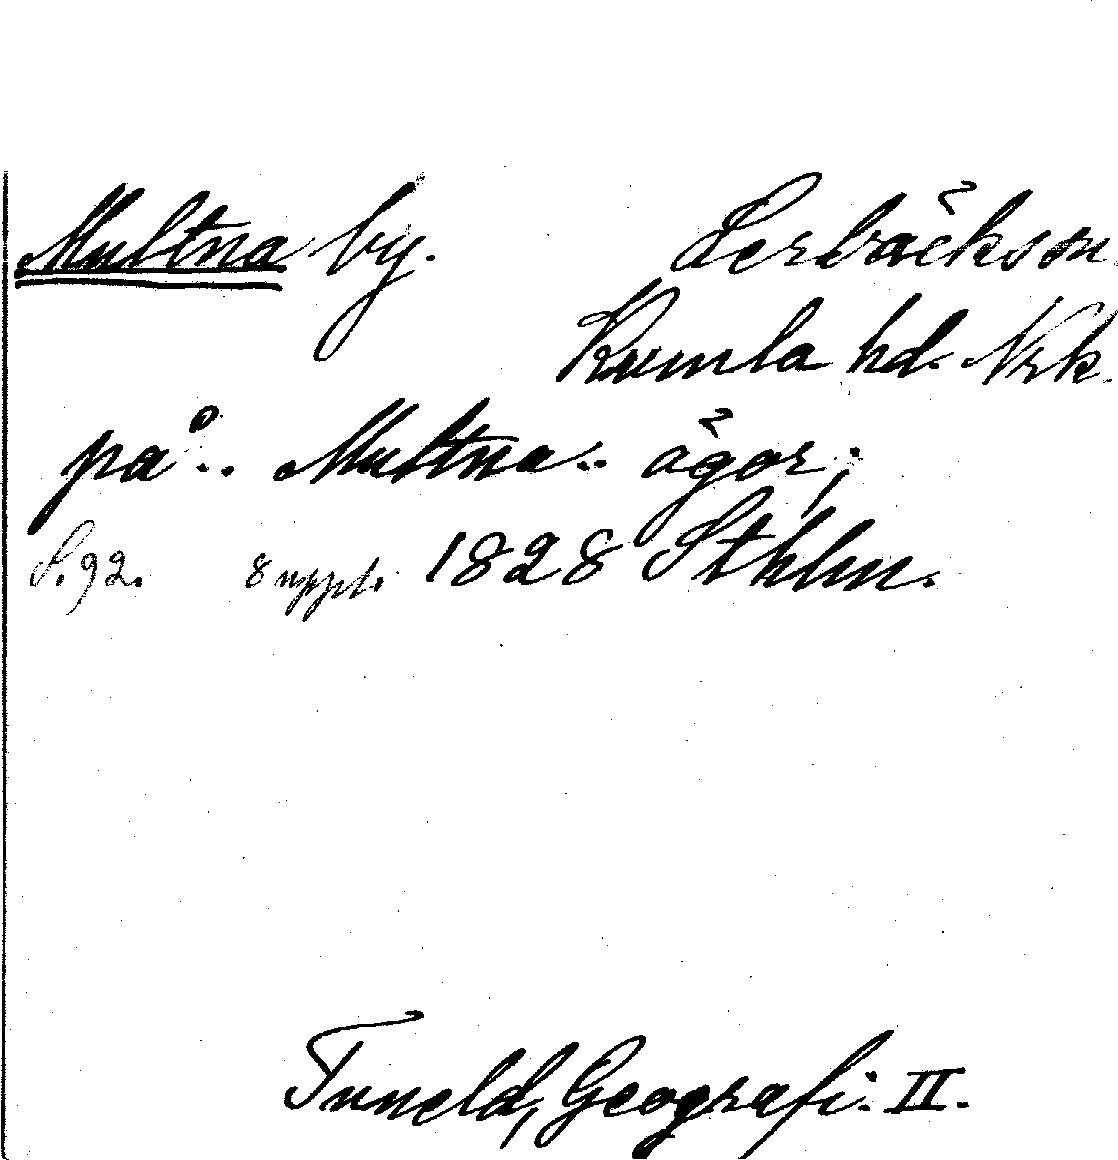 Multna by. Lerbäckson.
Kumla hd. Nrk.
på.. Multna.. ägor;
S. 92. 8 uppl. 1828 Sthlm.
Tuneld, Geografi. II.